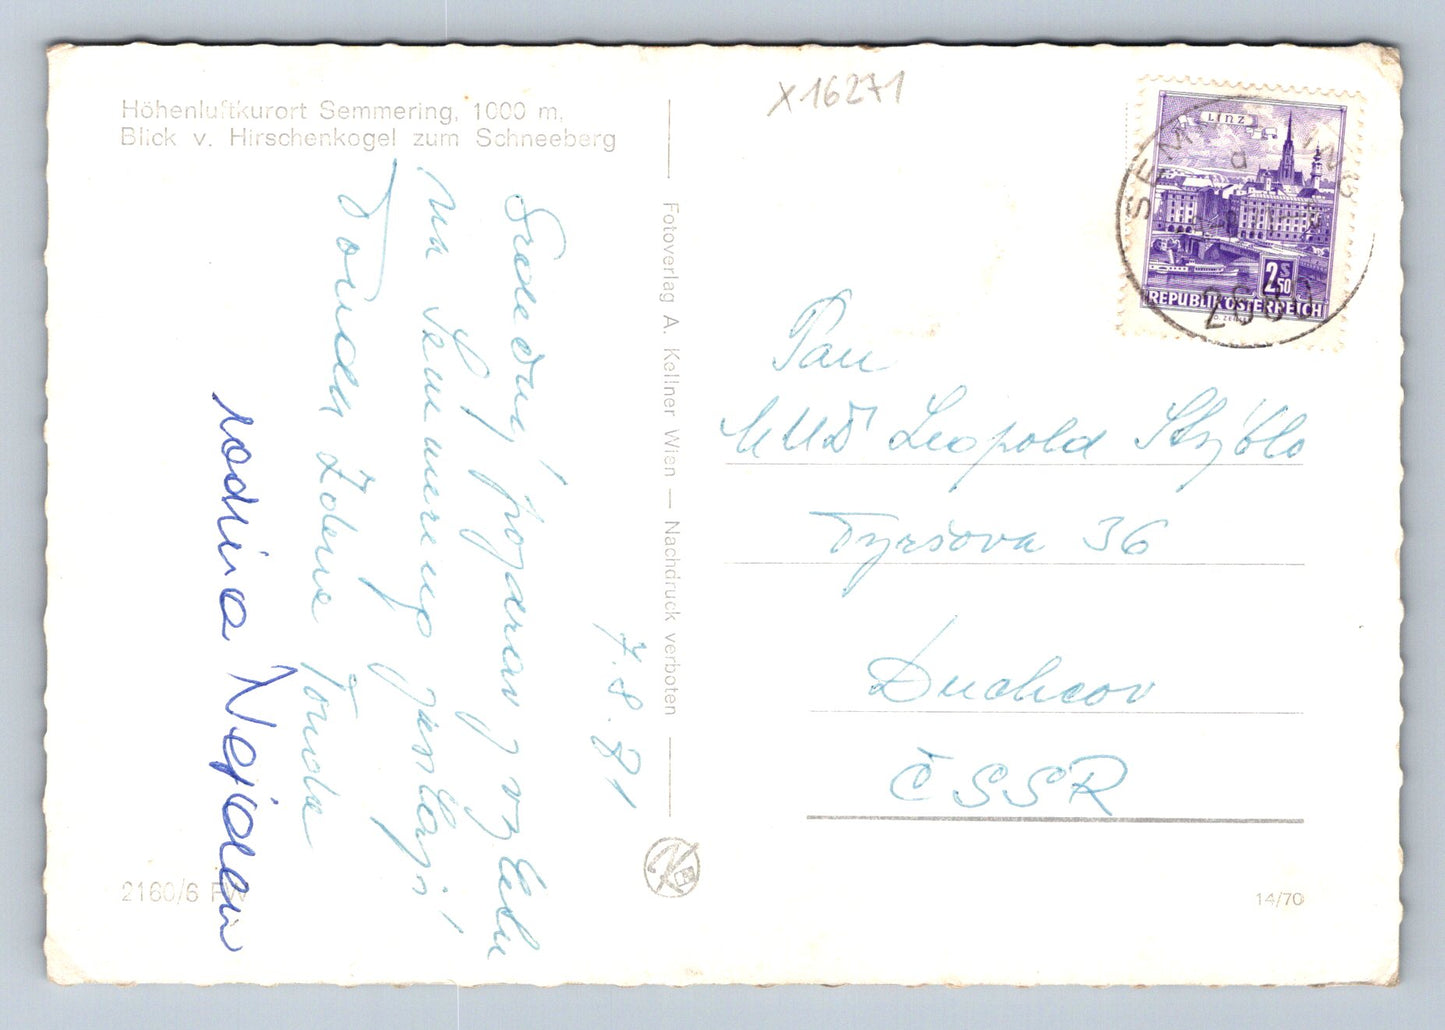 Höhenluftkurort Semmering, 1000 m,
Blick v. Hirschenkogel zum Schneeberg
Srdečný pozdrav z výletu
na Semmering zasílají
Tonda Zdena Tonda
rodina
7.8.81
Fotoverlag A. Kellner Wien — Nachdruck verboten
2160/6 PW
X16271
LINZ
2 S 50
REPUBLIK ÖSTERREICH
2680
Pan
MUDr Leopold Stýblo
Tyršova 36
Duchcov
ČSSR
14/70